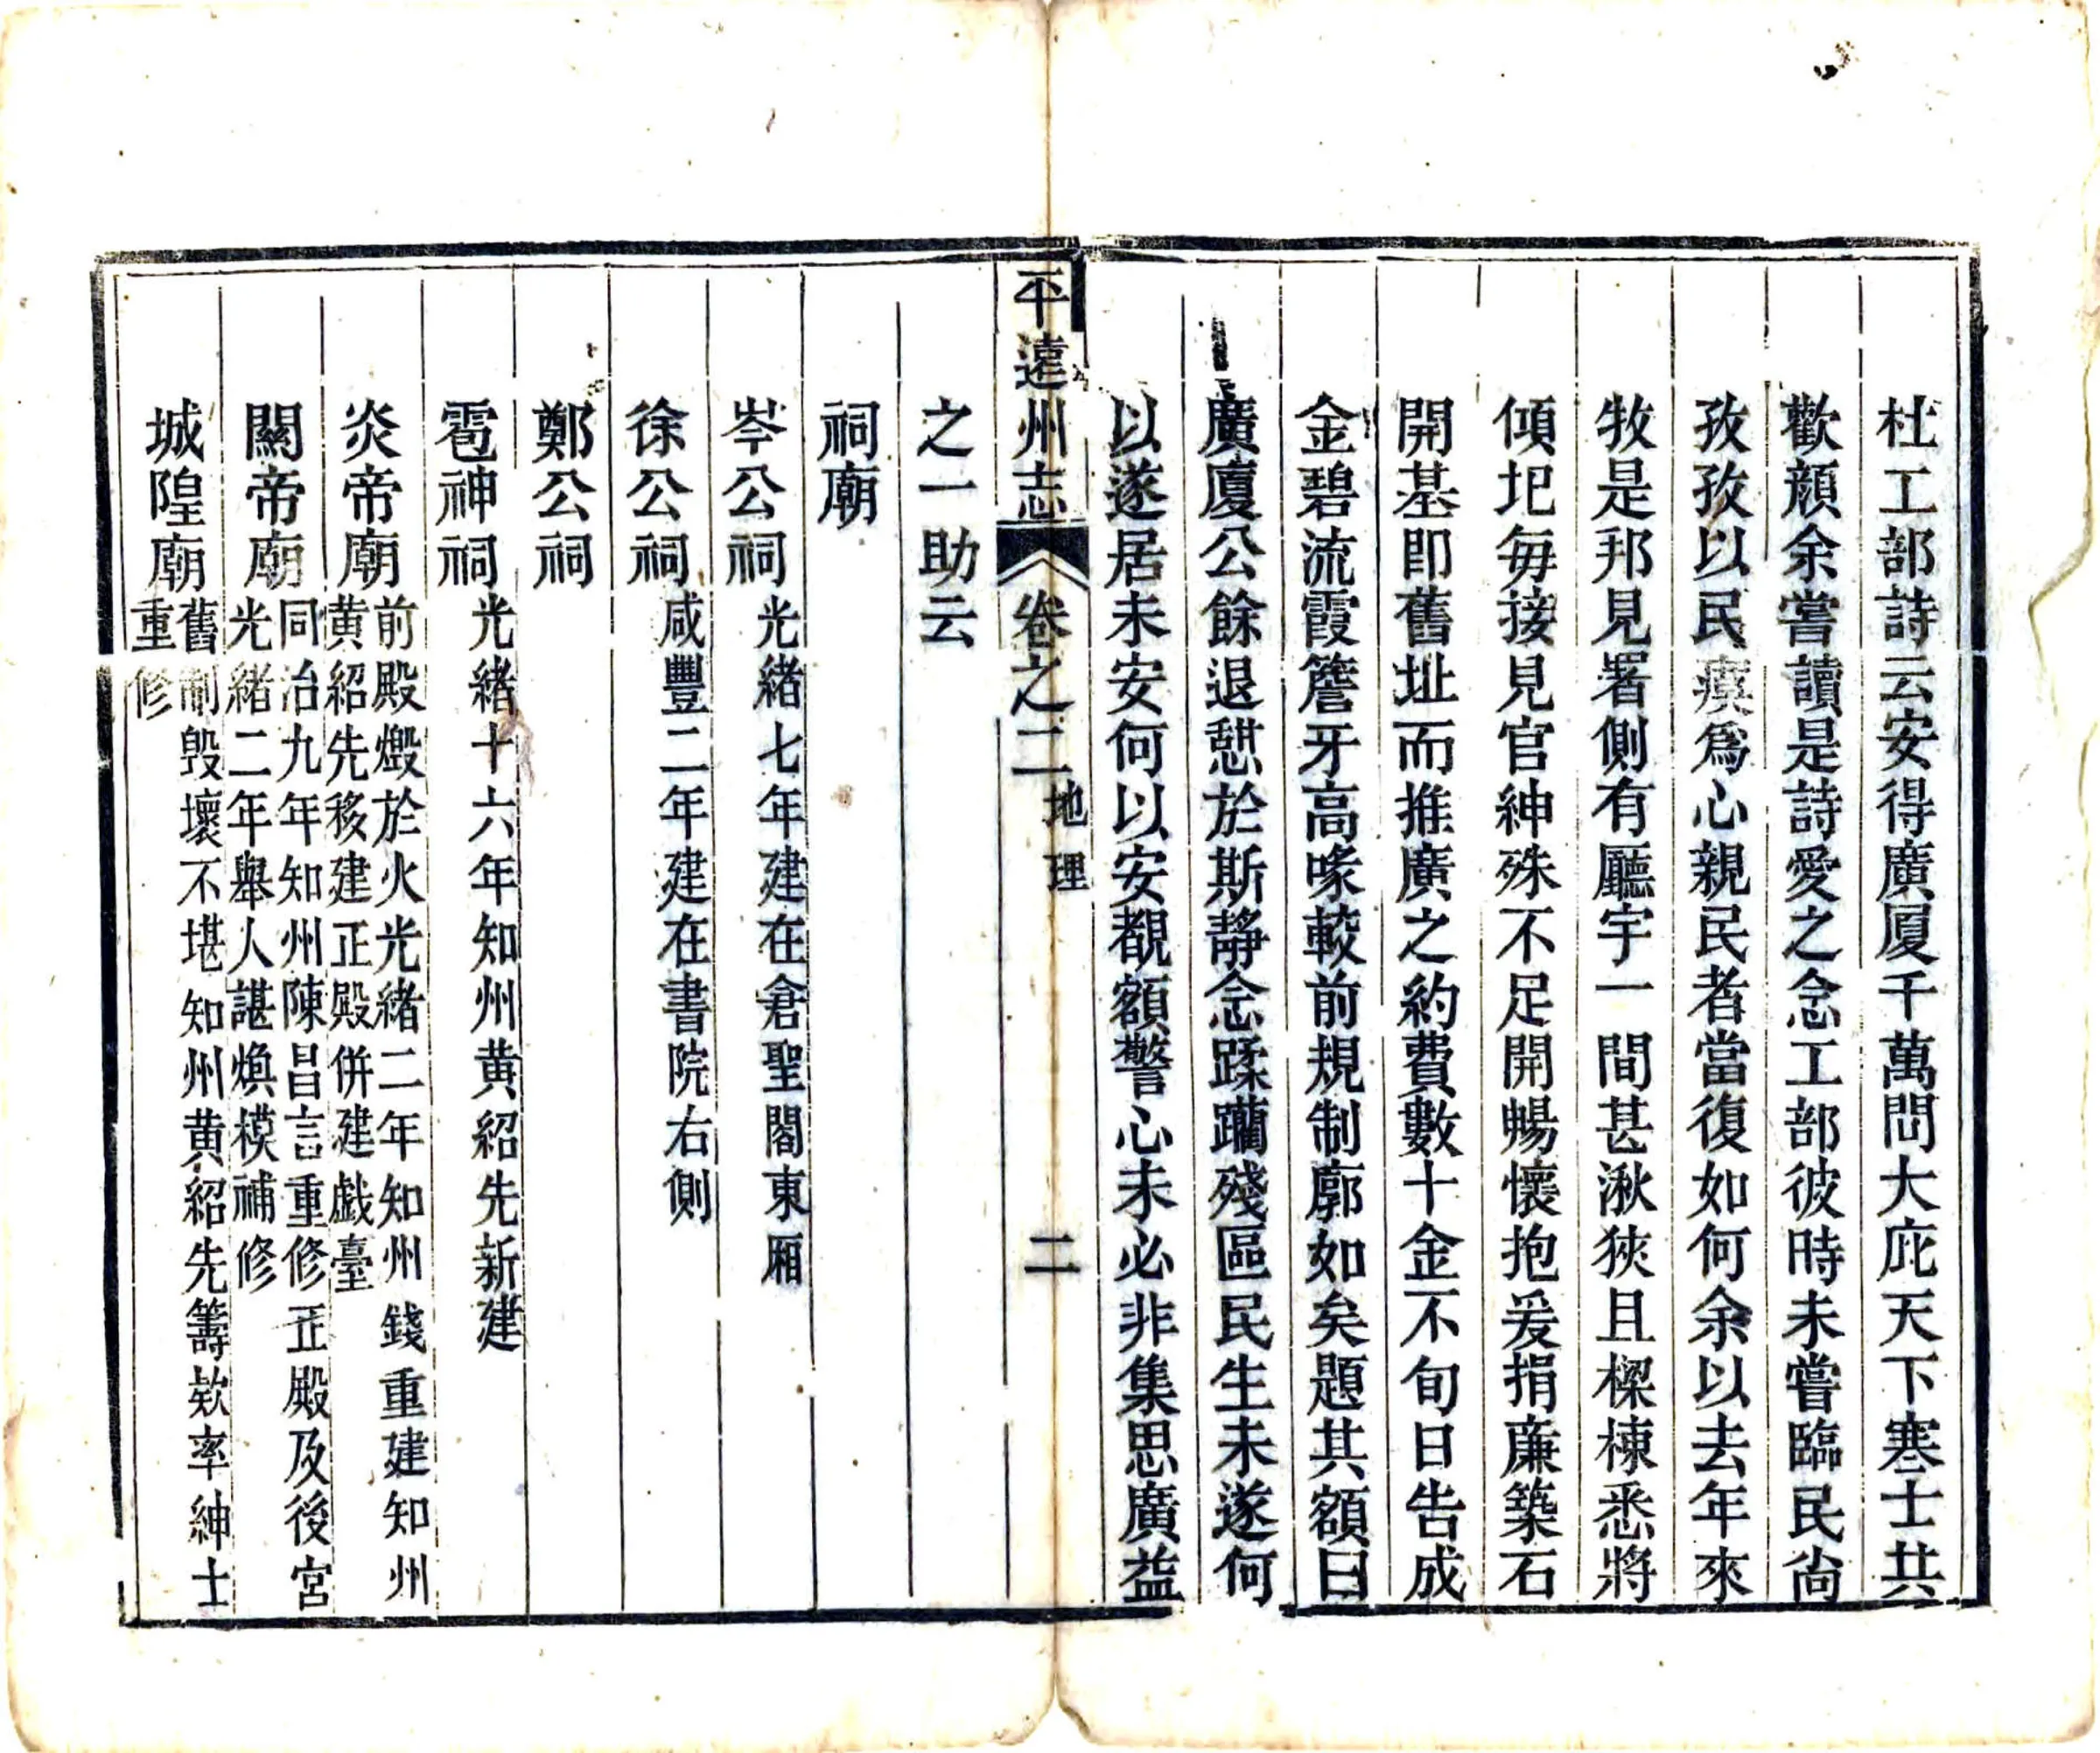 杜工部詩云安得廣厦千萬問大庇天下寒士共
歡顔余嘗讀是詩愛之念工部彼時未嘗臨民尚
孜孜以民瘼爲心親民者當復如何余以去年來
牧是邦見署側有廳宇一間甚湫狹且樑棟悉將
傾圯每接見官紳殊不足開暢懷抱爰捐廉築石
開基即舊址而推廣之約費數十金不旬日告成
金碧流霞簷牙高喙較前規制廓如矣題其額曰
廣廈公餘退憇於斯靜念蹂躪殘區民生未遂何
以遂居未安何以安覩額警心未必非集思廣益
平遠州志 卷之二 地理 二
之一助云
祠廟
岑公祠 光緒七年建在倉聖閣東厢
徐公祠 咸豐二年建在書院右側
鄭公祠
雹神祠 光緒十六年知州黄紹先新建
炎帝廟 前殿燬於火光緒二年知州錢重建知州
黄紹先移建正殿併建戯臺
關帝廟 同治九年知州陳昌言重修正殿及後宮
光緒二年舉人諶煥模補修
城隍廟 舊制毁壞不堪知州黄紹先籌欵率紳士
重修